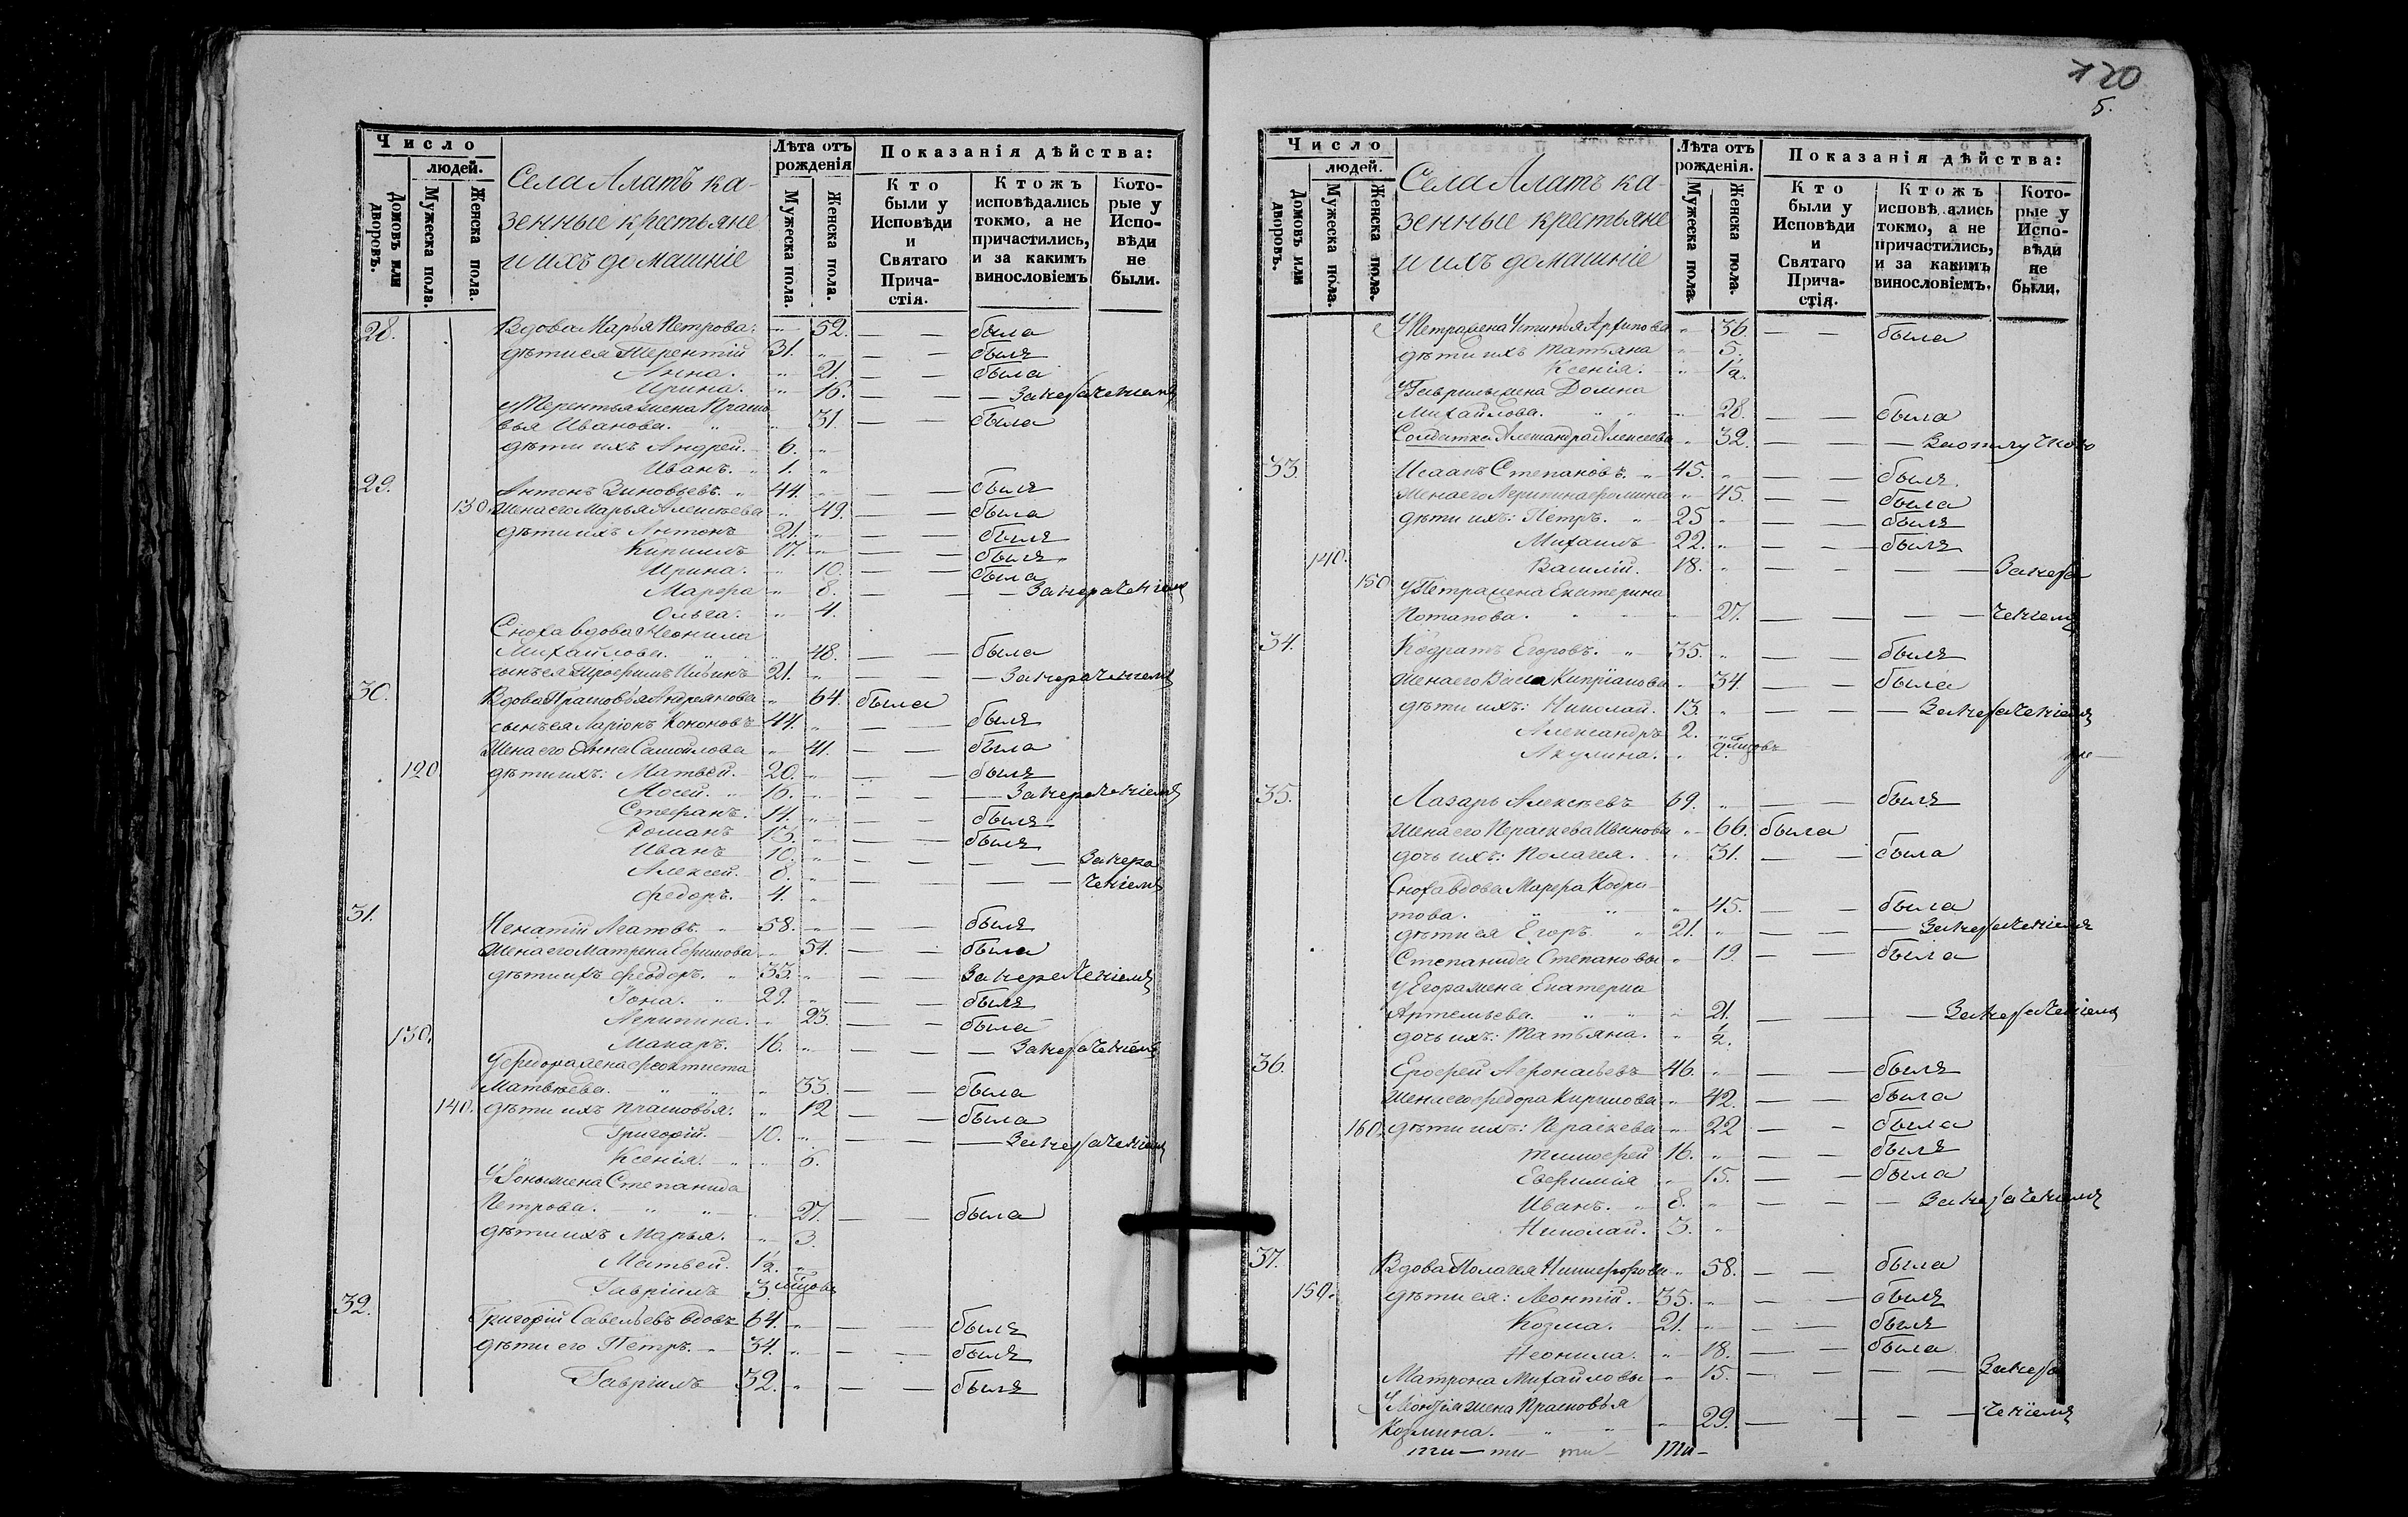 Число
людей.
Домовъ или дворовъ.
Мужеска пола.
Женска пола.
Села Алатъ ка-
зенные крестьяне
и ихъ домашніе
Лѣта отъ рожденія
Мужеска пола.
Женска пола.
Показанія дѣйства:
Кто были у Исповѣди и Святаго Причастія.
Ктожъ исповѣдались токмо, а не причастились, и за какимъ винословіемъ
Которые у Исповѣди не были.
28. Вдова Марья Петрова. " 52. — — была
дѣти ея Терентій 31. " — — былъ
Анна. " 21. — — была
Ирина. " 16. — — —
у Терентья жена Праско-
вья Ивановa. " 31. — — была
дѣти ихъ Андрей. 6. "
Иванъ. 1. "
29. Антонъ Зиновьевъ. 44. " — — былъ
130. жена его Марья Алексѣева " 49. — — была
дѣти ихъ Антонъ 21. " — — былъ
Кириллъ 17. " — — былъ
Ирина. " 10. — — была
Марѳа " 8. — — —
Ольга. " 4.
Сноха вдова Неонила
Михайлова. " 48. — — была
сынъ ея 21. " — — —
30. Вдова Прасковья Андреянова " 64. была
сынъ ея Ларіонъ Кононовъ 44. " — — былъ
жена его Анна Самойлова " 41. — — была
120. дѣти ихъ: Матвей. 20. " — — былъ
Мосей. 16. " — — —
Стефанъ. 14. " — — былъ
Романъ 13. " — — былъ
Иванъ 10. " — — — —
Алексей. 8. " — — — —
Федоръ. 4. "
31. Игнатій Агаповъ. 58. " — — былъ
жена его Матрена Ефимова " 51. — — была
дѣти ихъ Феодоръ. 33. " — —
Іона. 29. " — — былъ
Агрипина. " 23. — — была
130. Макаръ. 16. " — — —
У Федора жена Феоктиста
Матвѣева. " 33. — — была
140. дѣти ихъ Прасковья. " 12 — — была
Григорій. 10. " — — —
Ксенія. " 6.
У Іоны жена Степанида
Петрова. " 27. — — была
дѣти ихъ Марья. " 3.
Матвей. 1/2. "
Гавріилъ 3
32. Григорій Савельевъ вдовъ 64. " — — былъ
дѣти его Петръ. 34. " — — былъ
Гавріилъ 32. " — — былъ
120
5.
Число
людей.
Домовъ или дворовъ.
Мужеска пола.
Женска пола.
Села Алатъ ка-
зенные крестьяне
и ихъ домашніе
Лѣта отъ рожденія.
Мужеска пола.
Женска пола.
Показанія дѣйства:
Кто были у Исповѣди и Святаго Причастія.
Ктожъ исповѣ ались токмо, а не причастились, и за какимъ винословіемъ.
Которые у Исповѣди не были.
У Петра жена Устинья Архипова " 36. — — была
дѣти ихъ Татьяна " 5.
Ксенія. " 1/2.
У Гаврилы жена Домна
Михайлова. " 28. — — была
Солдатка Александра Алексеева " 32. — — —
33. Исаакъ Степановъ. 45. " — — былъ
жена его Агрипина Фомина " 45. — — была
дѣти ихъ: Петръ. 25 " — — былъ
Михаилъ 22. " — — былъ
140. Василій. 18. " — — — —
150 у Петра жена Екатерина
Потапова. " 27. — — — —
34. Кодратъ Егоровъ. 35. " — — былъ
жена его Васса Кипріанова " 34. — — была
дѣти ихъ: Николай. 13. " — — —
Александръ 2. "
Акулина. " 2.
35. Лазарь Алексѣевъ 69. " — — былъ
жена его Параскева Иванова " 66. была
дочь ихъ: Пелагея. " 31. — — была
Сноха вдова Марѳа Кодра-
това. " 45. — — была
дѣти ея Егоръ 21. " — — —
Степанида Степановы " 19. — — была
у Егора жена Екатерина
Артемьева. " 21. — — —
дочь ихъ: Татьяна. " 1/2.
36. Ерофей Афонасьевъ 46. " — — былъ
жена его Федора Кирилова " 42. — — была
160. дѣти ихъ: Параскева " 22 — — была
Тимофей 16. " — — былъ
Евфимія " 15. — — была
Иванъ. 8. " — — —
Николай. 3. "
37. Вдова Пелагея Никифорова " 58. — — была
150. дѣти ея: Леонтій. 35. " — — былъ
Козма. 21. " — — былъ
Неонила. " 18. — — была
Матрона Михайловы " 15. — — — —
У Леонтія жена Прасковья
Козмина. " 29. — — — —